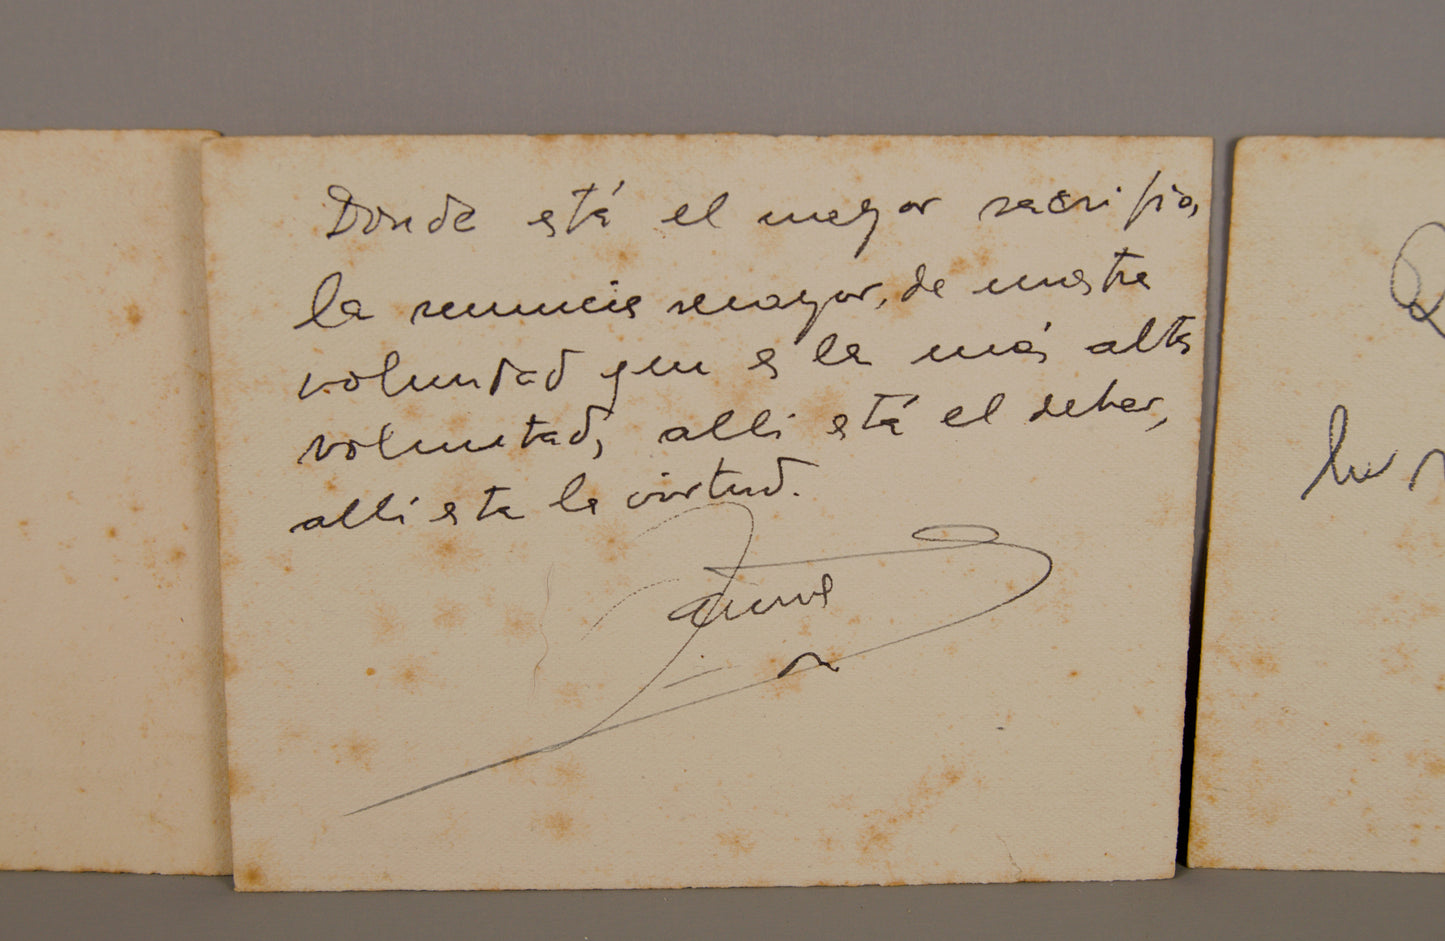 Donde está el mayor sacrificio,
la renuncia mayor, de nuestra
voluntad que es la más alta
voluntad, alli está el deber,
allí esta la virtud.